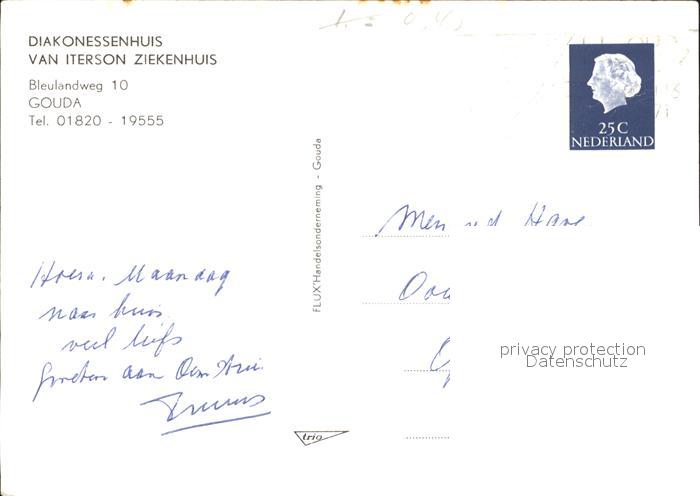 DIAKONESSENHUIS
VAN ITERSON ZIEKENHUIS
Bleulandweg 10
GOUDA
Tel. 01820 - 19555
25 C
NEDERLAND
FLUX' Handelsonderneming - Gouda
Hoera. Maandag
naar huis.
veel liefs
Groeten aan Oom
privacy protection
Datenschutz
trio